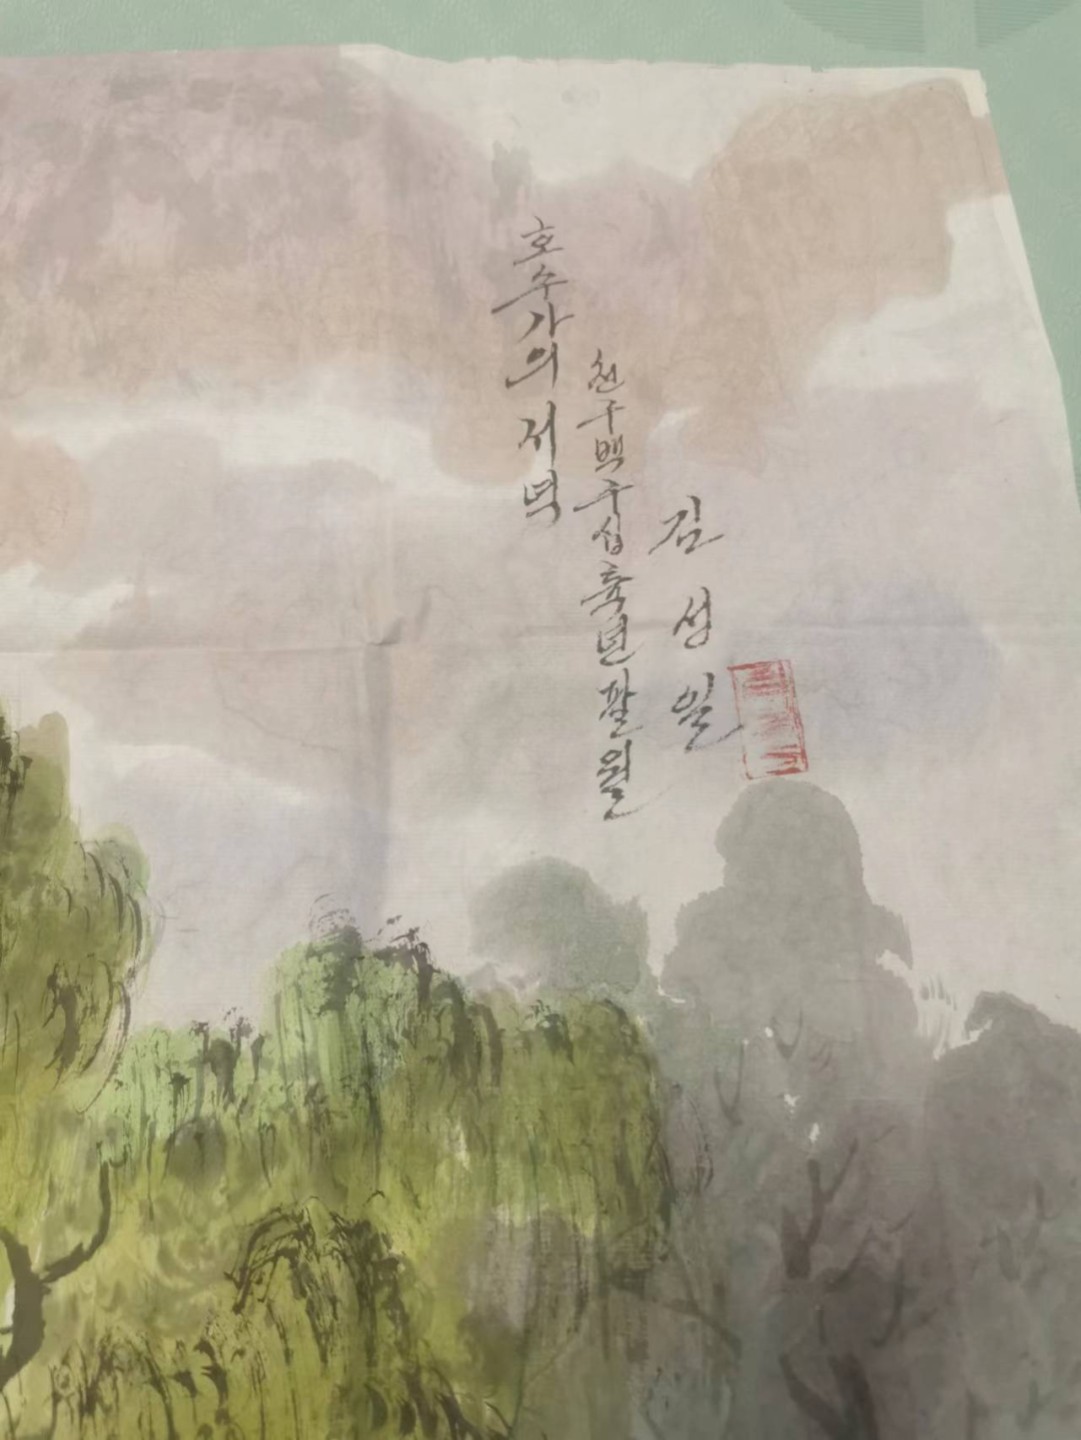 호수가의 저녁
천구백구십륙년팔월
김성일